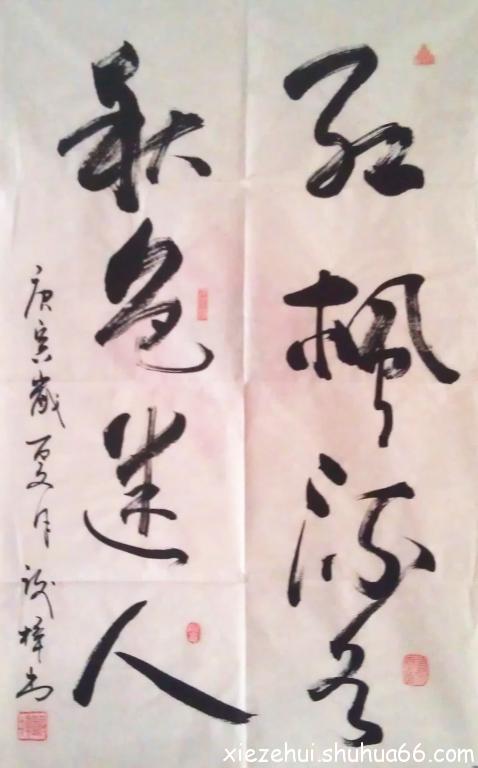 红枫
秋色迷人
庚寅岁夏月书
xiezehui.shuhua66.com